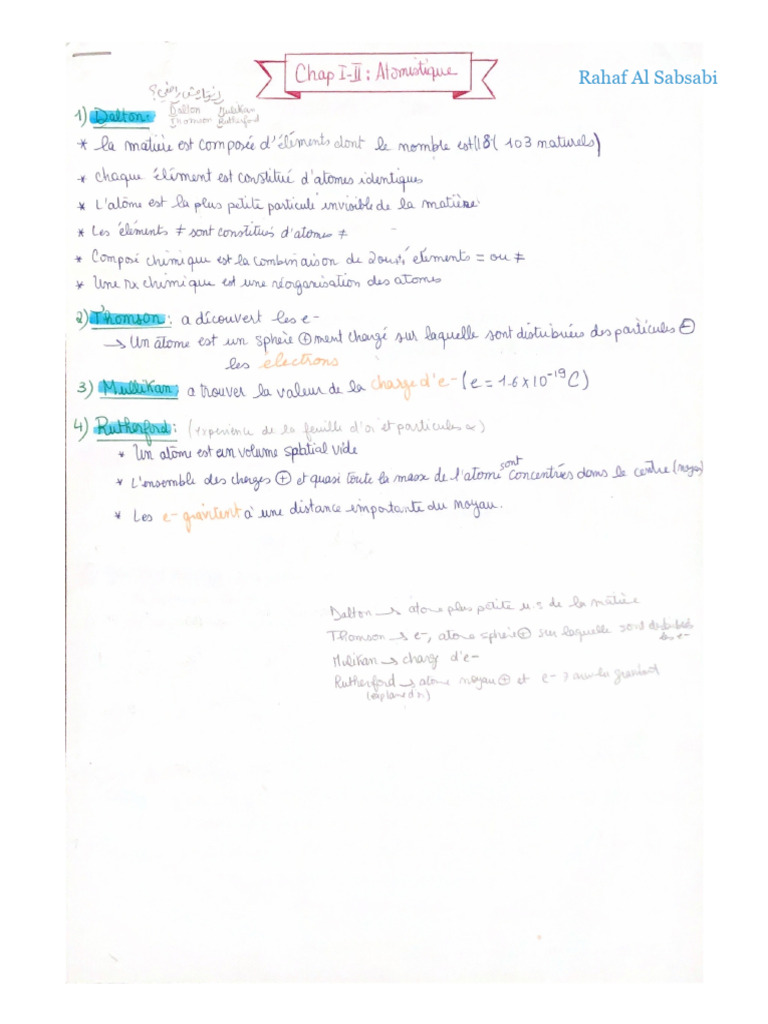 Chap I-II : Atomistique
Rahaf Al Sabsabi
Dalton Mulikan
Thomson Rutherford
1) Dalton:
* la matière est composée d'éléments dont le nombre est 118 ( 103 naturels)
* chaque élément est constitué d'atomes identiques
* L'atôme est la plus petite particule invisible de la matière
* Les éléments ≠ sont constitués d'atomes ≠
* Composé chimique est la combinaison de 2 ous éléments = ou ≠
* Une rx chimique est une réorganisation des atomes
2) Thomson : a découvert les e-
→ Un atome est un sphère ⊕ment chargé sur laquelle sont distribuées des particules ⊖
les electrons
3) Mullikan : a trouver la valeur de la charge d'e- (e = 1.6 x 10⁻¹⁹ C)
4) Rutherford : (experience de la feuille d'or et particules α)
* Un atôme est un volume spatial vide
* L'ensemble des charges ⊕ et quasi toute la masse de l'atome sont concentrées dans le centre (noyau)
* Les e- gravitent à une distance importante du noyau.
Dalton → atome plus petite de la matière
Thomson → e-, atome sphère ⊕ sur laquelle sont distribués les e-
Mulikan → charge d'e-
Rutherford → atome noyau ⊕ et e-